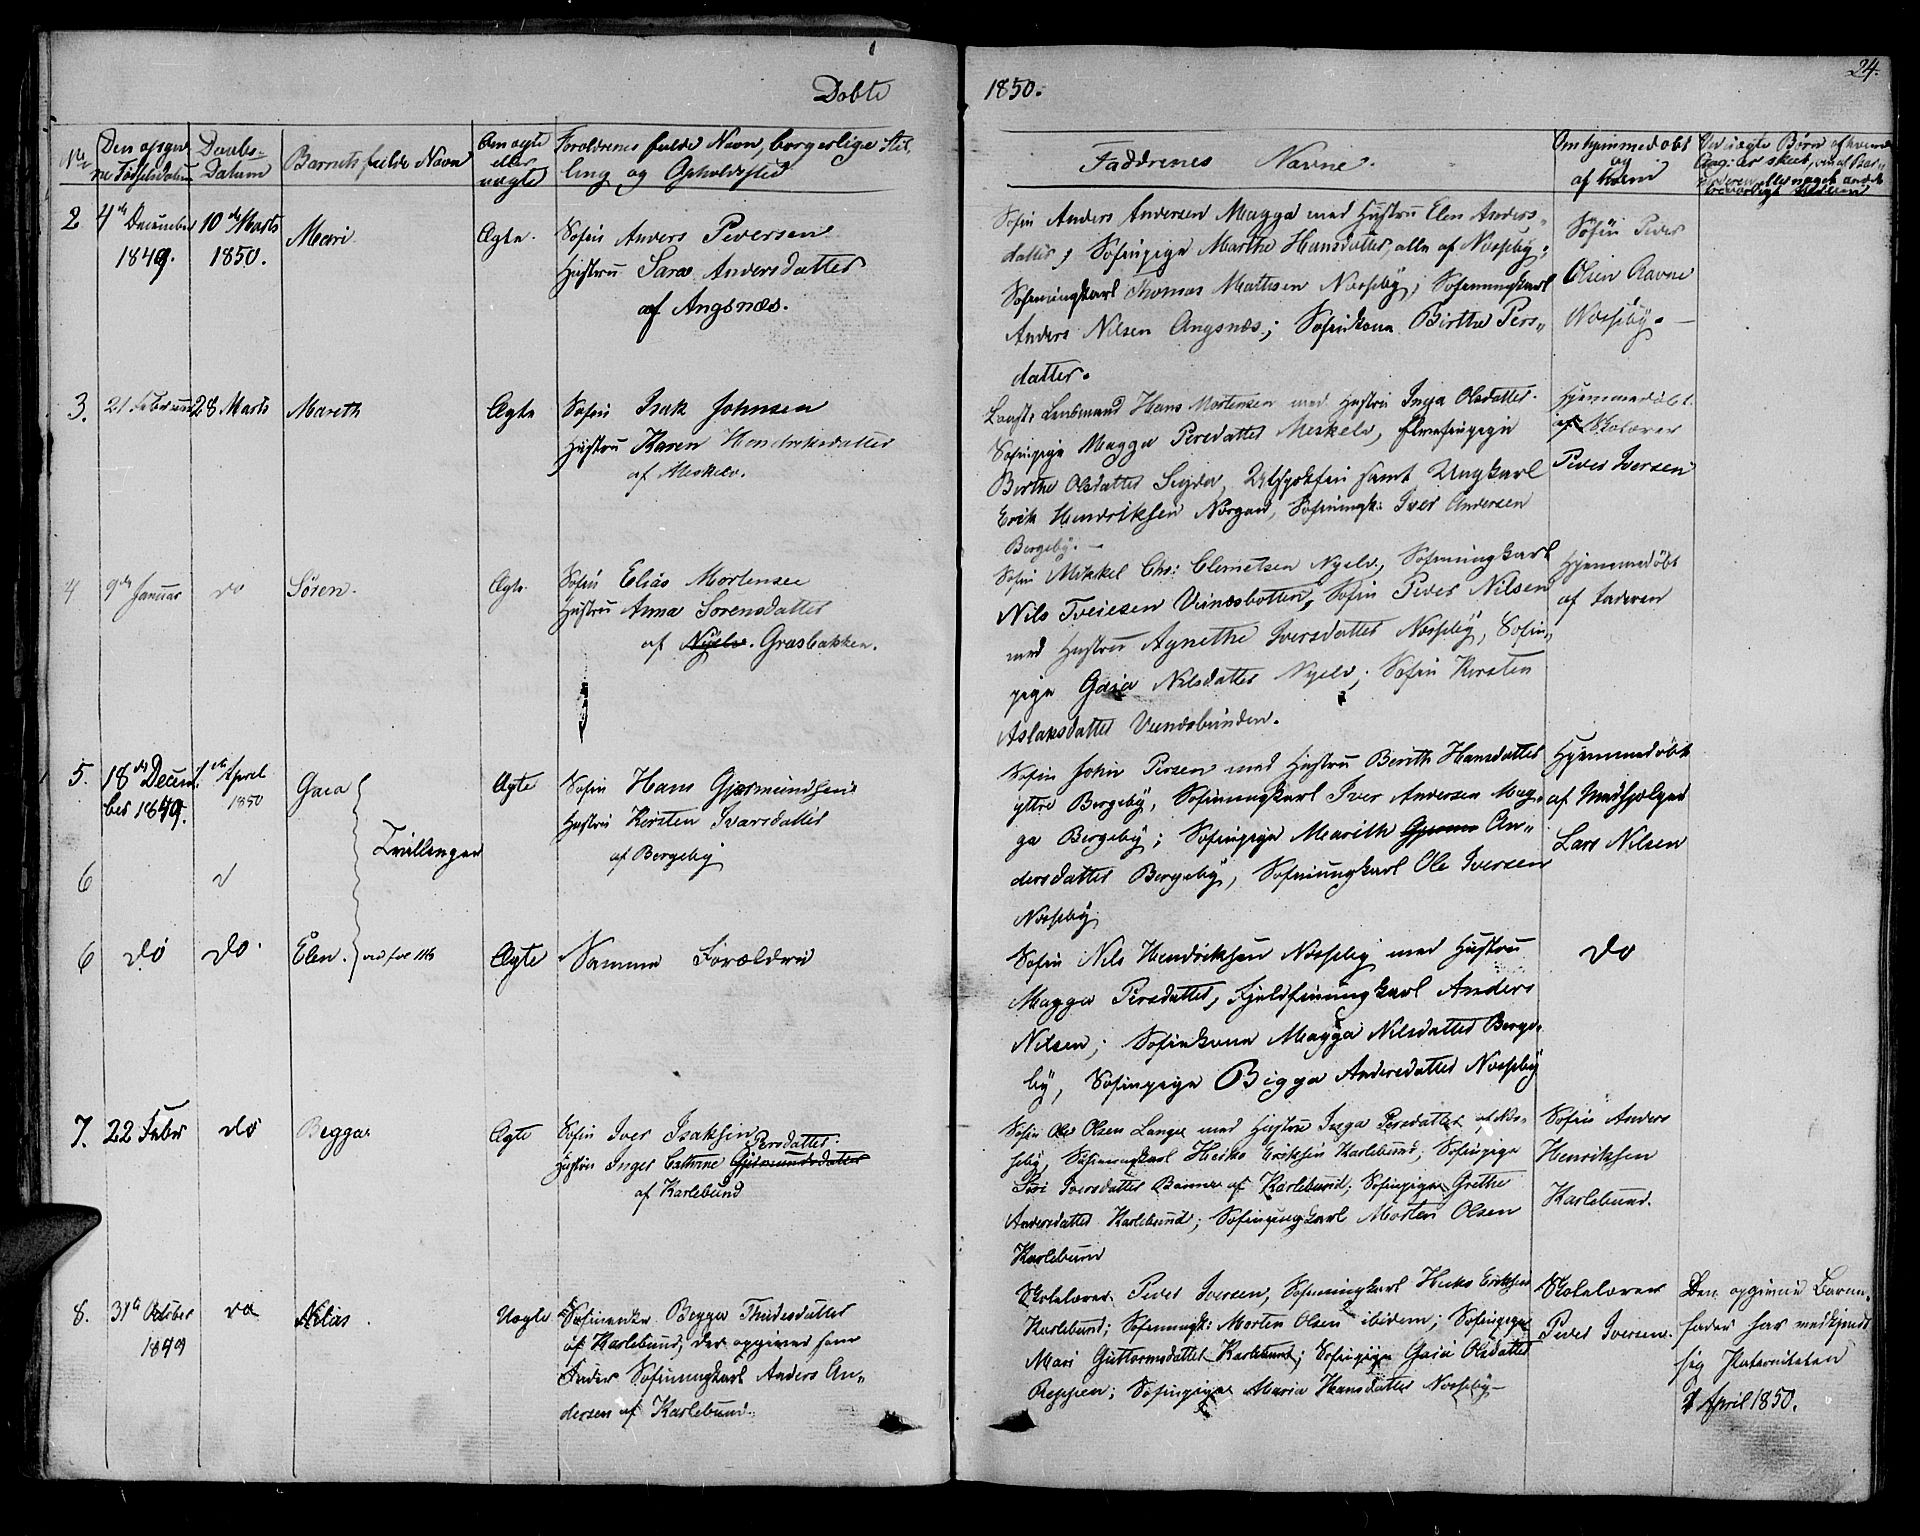 Døbte
1850.
24.
No
Den opgivne Fødselsdatum
Daabs-Datum
Barnets fulde Navn
Om ægte eller uægte
Forældrenes fulde Navn, borgerlige Stilling og Opholdssted
Faddrenes Navne.
Om hjemmedøbt og af hvem
2
4de December 1849.
10de Marts 1850.
Mari
Ægte.
Søfin Anders Peversen
Hustru Sara Andersdatter
af Angsnæs.
Søfin Anders Andersen Magga med Hustru Elen Anders-
datter, Søfinpige Marthe Hansdatter, alle af Næsseby;
Søfinungkarl Thomas Mathisen Næsseby; Søfinungkarl
Anders Nilsen Angsnæs; Søfinkone Birthe Pers-
datter.
Søfin Peder
Olsen Ravne
Næsseby.
3.
21 Februar
28 Marts
Mareth
Ægte
Søfin Isak Johnsen
Hustru Karen Hendriksdatter
af Meskelv.
Lensmand Hans Mortensen med Hustru Inga Olsdatter.
Søfinpige Magga Persdatter Meskelv,
Birthe Olsdatter samt Ungkarl
Erik Hendriksen Norgaard, Søfinungk: Iver Andersen
Bergeby.
Hjemmedøbt
af Skolelærer
Peder Iversen
4
9de Januar
do
Søren.
Ægte
Søfin Elias Mortensen
Hustru Anna Sørensdatter
af Nyelv. Græsbakken.
Søfin Mikkel Chr: Clemetsen Nyelv, Søfinungkarl
Nils Iversen Vunæsbotten, Søfin Peder Nilsen
med Hustru Agnethe Iversdatter Næsseby, Søfin-
pige Gaia Nilsdatter Nyelv; Søfin Kirsten
Aslaksdatter Vunæsbunden.
Hjemmedøbt
af Faderen
5.
18de Decem-
ber 1849.
1ste April
1850
Gaia
Tvillinger
Ægte
Søfin Hans Gjermundsen
Hustru Kirsten Ivarsdatter
af Bergeby
Søfin John Persen med Hustru Berith Hansdatter
yttre Bergeby, Søfinungkarl Iver Andersen Mag-
ga Bergeby; Søfinpige Marith An-
dersdatter Bergeby, Søfinungkarl Ole Iversen
Næsseby
Hjemmedøbt
af Medhjælper
Lars Nilsen
6
6
do
do.
Elen.
Ægte
Samme Forældre
Søfin Nils Hendriksen Næsseby med Hustru
Magga Persdatter, Fjeldfinungkarl Anders
Nilsen; Søfinkone Magga Nilsdatter Berge-
by, Søfinpige Bigga Andersdatter Næsseby
do
7.
22 Febr
do
Begga
Ægte
Søfin Iver Isaksen
Hustru Inger Cathrine Gjermundsdatter Persdatter.
af Karlebund
Søfin Ole Olsen Lange med Hustru Inga Persdatter af Næs-
seby, Søfinungkarl Heiko Eriksen Karlebund; Søfinpige
Siri Iversdatter Banne af Karlebund; Søfinpige Grethe
Andersdatter Karlebund; Søfinungkarl Morten Olsen
Karlebund
Søfin Anders
Henriksen
Karlebund.
8.
31te October
1849
do
Nilas
Uægte
Søfinenke Begga Thudesdatter
af Karlebund, der opgiver som
Fader Søfinungkarl Anders An-
dersen af Karlebund.
Skolelærer Peder Iversen, Søfinungkarl Heiko Eriksen
Karlebund; Søfinungk: Morten Olsen ibidem; Søfinpige
Mari Guttormsdatter Karlebund; Søfinpige Gaia Olsdatter
Reppen; Søfinpige Maria Hansdatter Næsseby
Skolelærer
Peder Iversen.
Den opgivne Barne-
fader har vedkjendt
sig Paterniteten
1 April 1850.